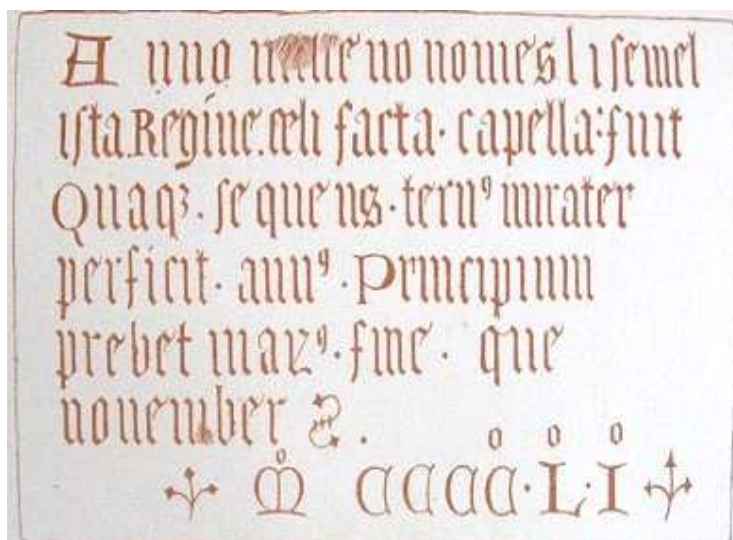 Anno milleno nonies l i semel
ista Regine celi facta · capella : fuit
Quaqꝫ · sequens · ternꝰ mirater
perficit · annꝰ · Principium
prebet marzꝰ · fine · que
nouember
M CCCC · L · I